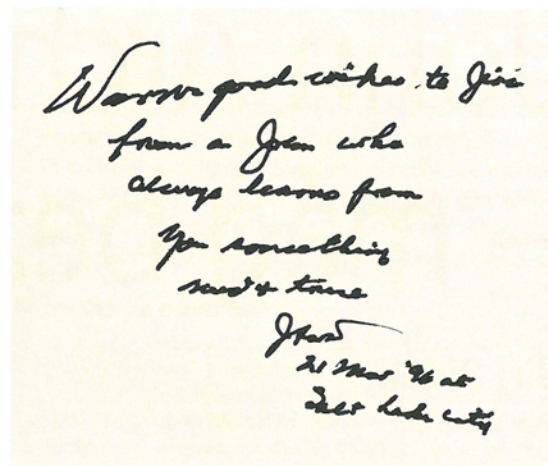 Warm good wishes to Jiri
from a John who
always learns from
you something
new & true
John
21 Mar '96 at
Salt Lake City